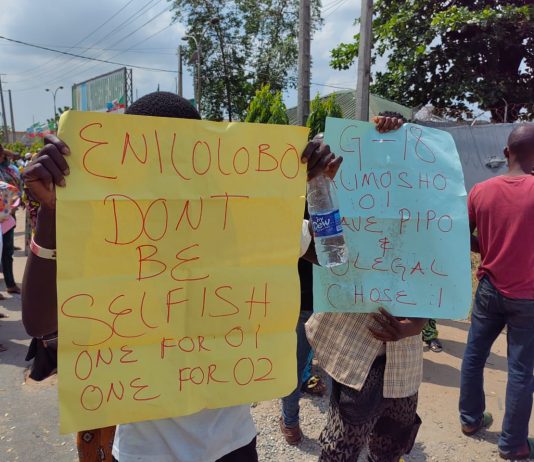 ENILOLOBO
DONT
BE
SELFISH
ONE FOR 01
ONE FOR 02
G-18
LIMOSHO
01
PIPO
&
LEGAL
CHOSE :1